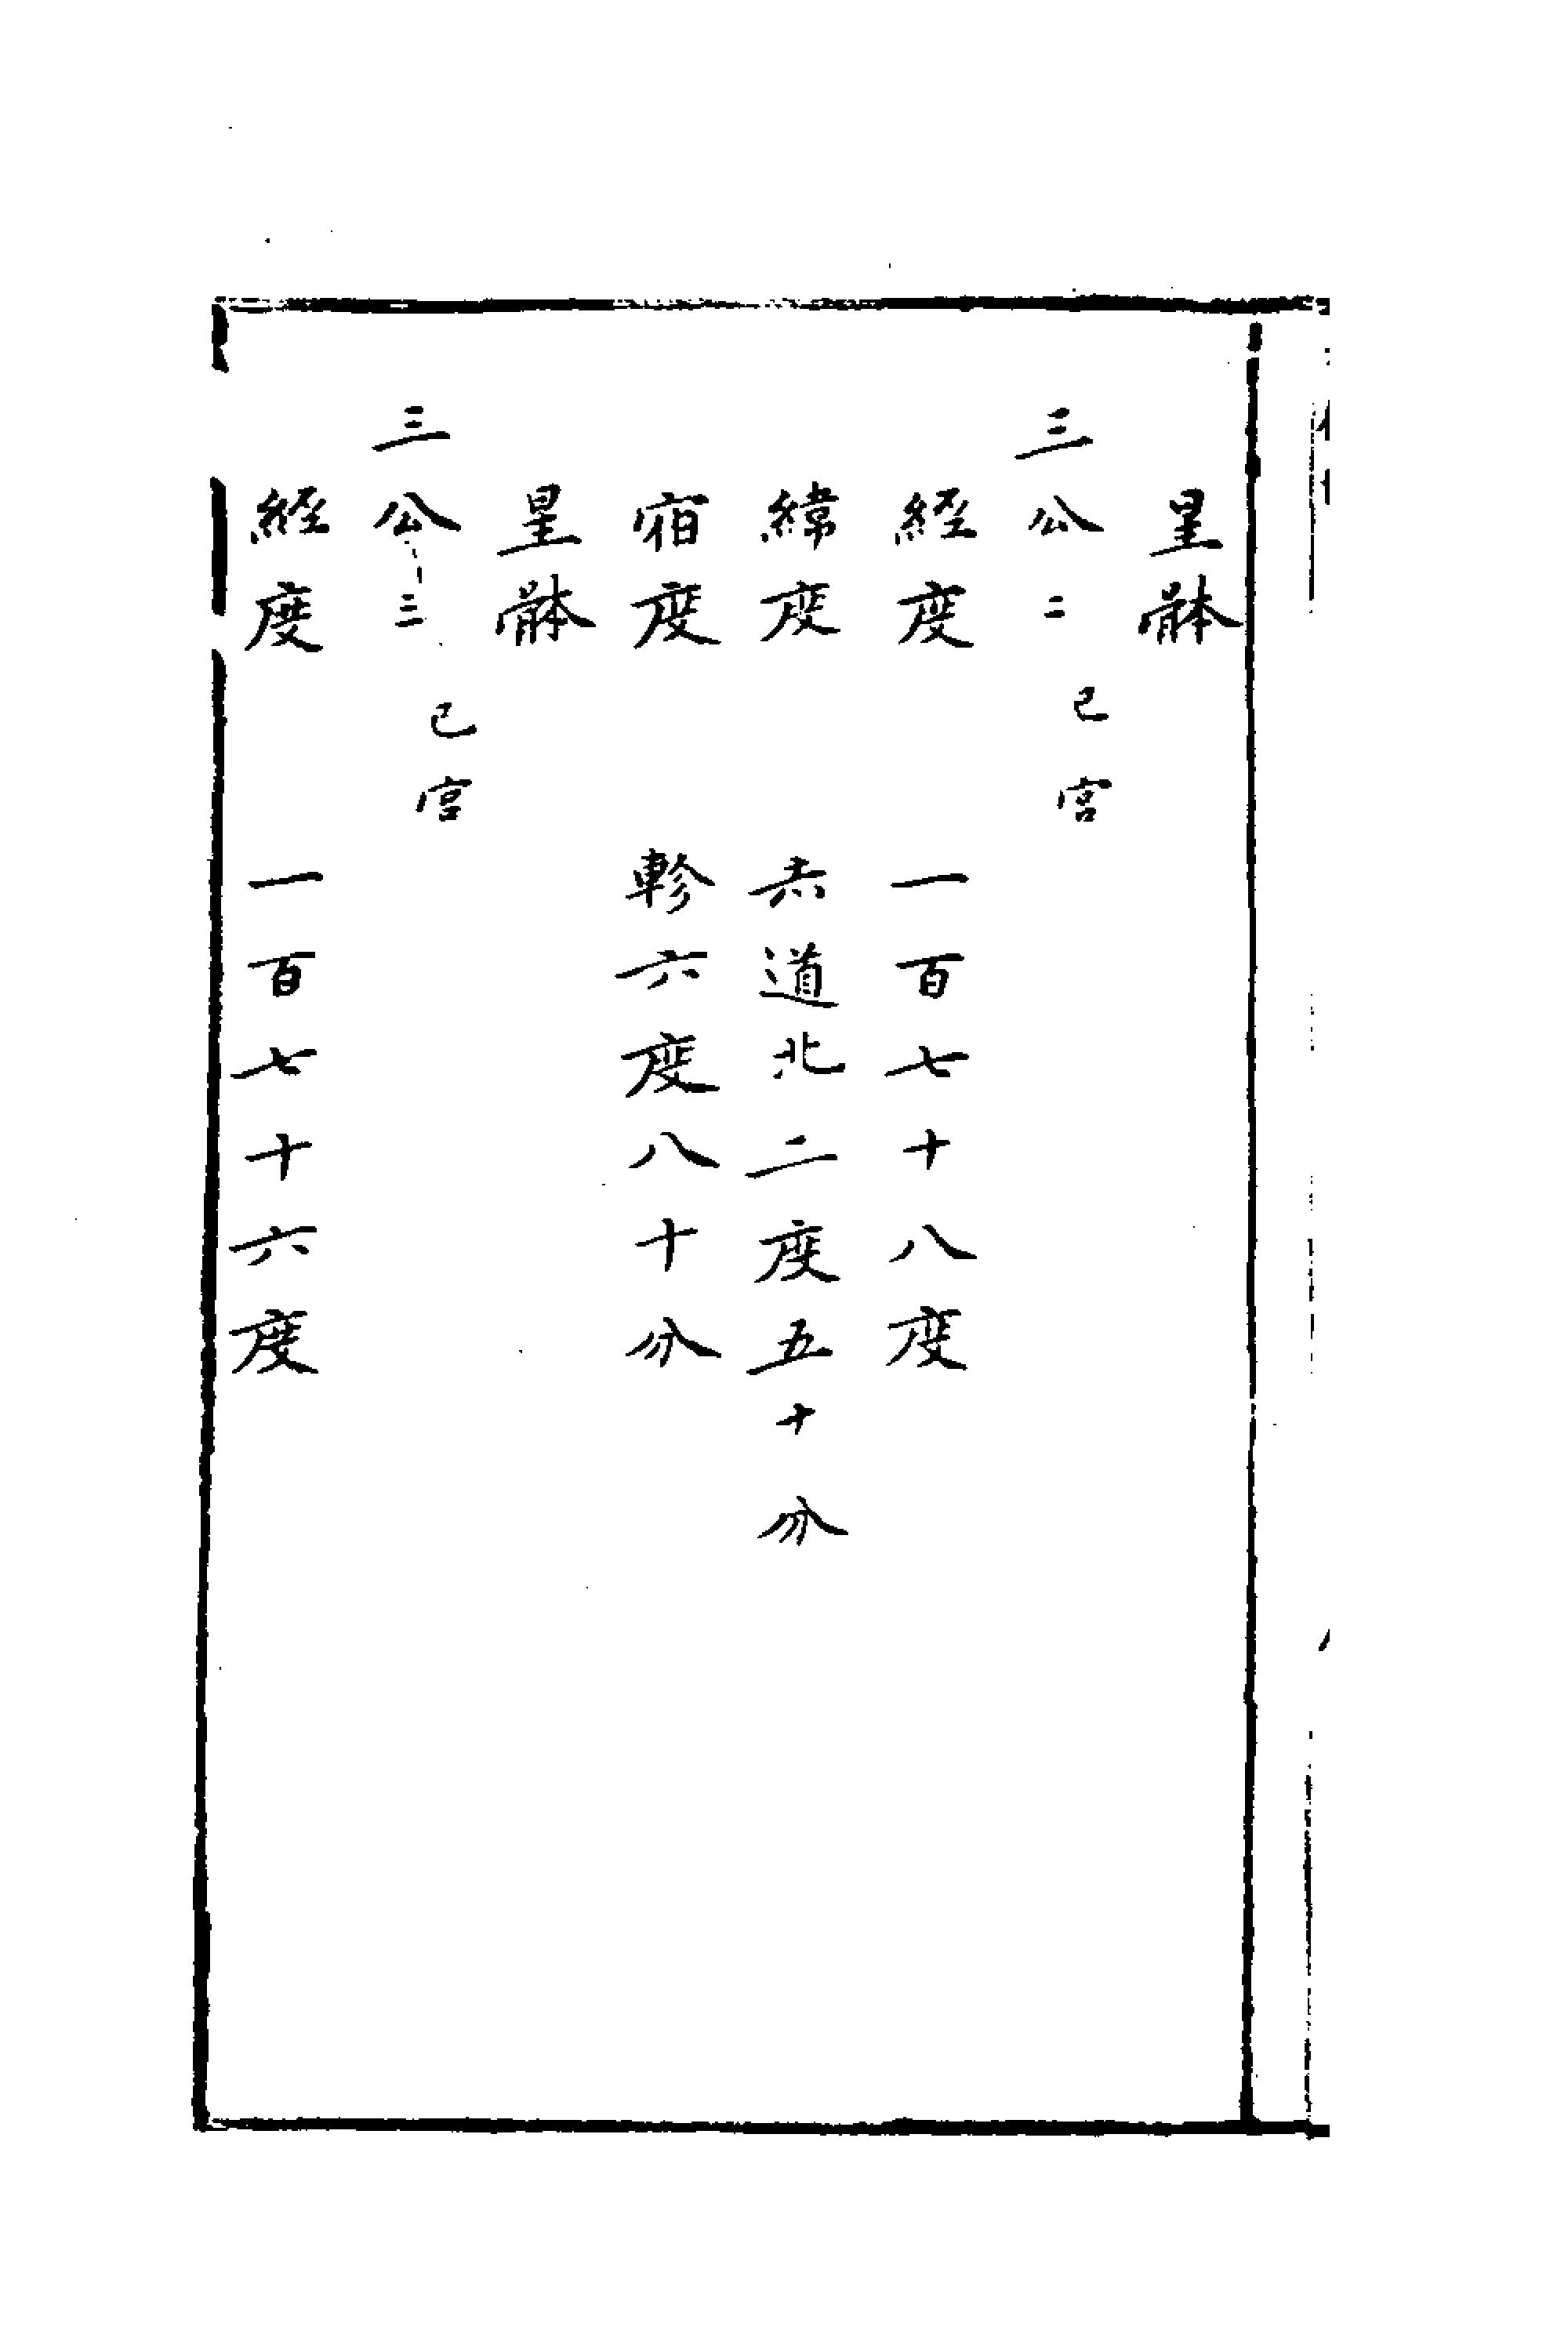 星躰
三公二 巳宫
経度 一百七十八度
緯度 赤道北二度五十分
宿度 軫六度八十分
星躰
三公三 巳宫
経度 一百七十六度